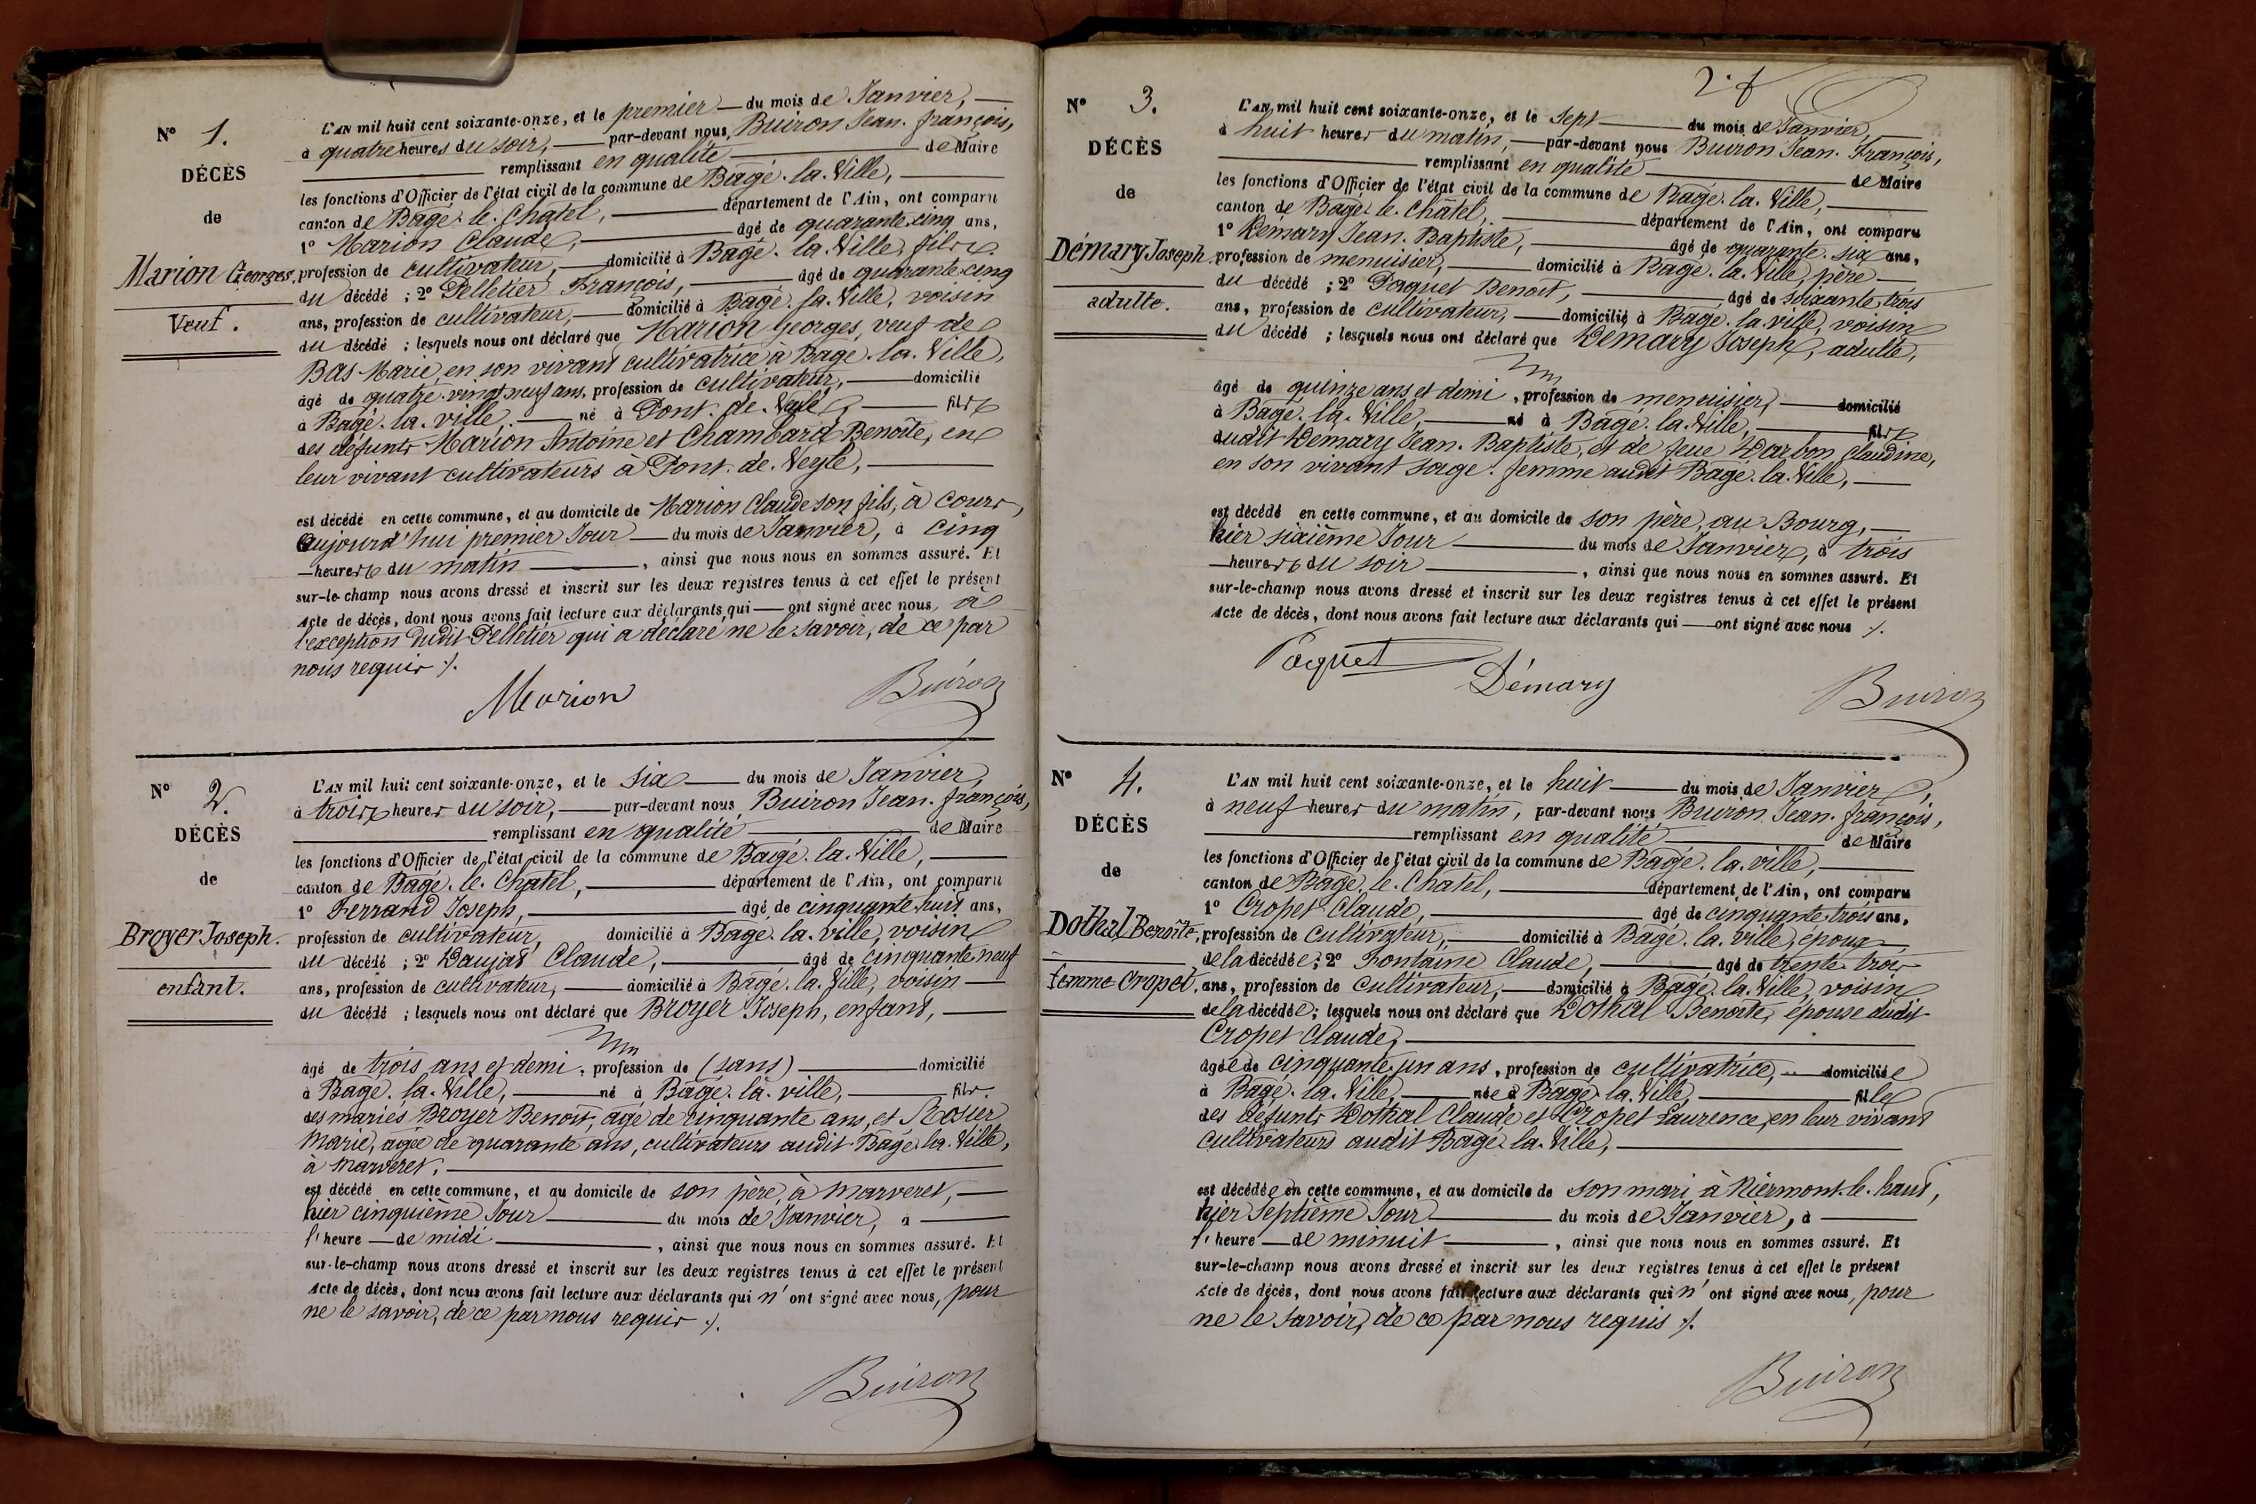 N° 1.
DÉCÈS
de
Marion Georges,
Veuf.
L'AN mil huit cent soixante-onze, et le premier du mois de Janvier,
à quatre heures du soir, par-devant nous Buiron Jean-françois,
remplissant en qualité de Maire
les fonctions d'Officier de l'état civil de la commune de Bagé-la-Ville,
canton de Bagé-le-Châtel, département de l'Ain, ont comparu
1° Marion Claude, âgé de quarante-cinq ans,
profession de cultivateur, domicilié à Bagé-la-Ville, fils
du décédé ; 2° Pelletier François, âgé de quarante-cinq
ans, profession de cultivateur, domicilié à Bagé-la-Ville, voisin
du décédé ; lesquels nous ont déclaré que Marion Georges, veuf de
Bas Marie, en son vivant cultivatrice à Bagé-la-Ville,
âgé de quatre-vingt-neuf ans, profession de cultivateur, domicilié
à Bagé-la-ville, né à Pont-de-Veyle, fils
des défunts Marion Antoine et Chambard Benoîte, en
leur vivant cultivateurs à Pont-de-Veyle,
est décédé en cette commune, et au domicile de Marion Claude son fils, à Cours,
aujourd'hui premier Jour du mois de Janvier, à cinq
heures du matin, ainsi que nous nous en sommes assuré. Et
sur-le-champ nous avons dressé et inscrit sur les deux registres tenus à cet effet le présent
Acte de décès, dont nous avons fait lecture aux déclarants qui ont signé avec nous, à
l'exception dudit Pelletier qui a déclaré ne le savoir, de ce par
nous requis ./.
Marion Buiron
N° 2.
DÉCÈS
de
Broyer Joseph.
enfant.
L'AN mil huit cent soixante-onze, et le six du mois de Janvier,
à trois heures du soir, par-devant nous Buiron Jean-françois,
remplissant en qualité de Maire
les fonctions d'Officier de l'état civil de la commune de Bagé-la-Ville,
canton de Bagé-le-Châtel, département de l'Ain, ont comparu
1° Ferrand Joseph, âgé de cinquante-huit ans,
profession de cultivateur, domicilié à Bagé-la-ville, voisin
du décédé ; 2° Daujat Claude, âgé de cinquante-neuf
ans, profession de cultivateur, domicilié à Bagé-la-Ville, voisin
du décédé ; lesquels nous ont déclaré que Broyer Joseph, enfant,
âgé de trois ans et demi, profession de (sans) domicilié
à Bagé-la-Ville, né à Bagé-la-ville, fils
des mariés Broyer Benoit, âgé de cinquante ans, et Rosier
Marie, âgée de quarante ans, cultivateurs audit Bagé-la-Ville,
à Marveret,
est décédé en cette commune, et au domicile de son père, à Marveret,
hier cinquième Jour du mois de Janvier, à
l'heure de midi, ainsi que nous nous en sommes assuré. Et
sur-le-champ nous avons dressé et inscrit sur les deux registres tenus à cet effet le présent
Acte de décès, dont nous avons fait lecture aux déclarants qui n'ont signé avec nous, pour
ne le savoir, de ce par nous requis ./.
Buiron
2.f
N° 3.
DÉCÈS
de
Démary Joseph
adulte.
L'AN mil huit cent soixante-onze, et le sept du mois de Janvier,
à huit heures du matin, par-devant nous Buiron Jean-François,
remplissant en qualité de Maire
les fonctions d'Officier de l'état civil de la commune de Bagé-la-Ville,
canton de Bagé-le-Châtel, département de l'Ain, ont comparu
1° Démary Jean-Baptiste, âgé de quarante-six ans,
profession de menuisier, domicilié à Bagé-la-Ville, père
du décédé ; 2° Paquet Benoit, âgé de soixante-trois
ans, profession de cultivateur, domicilié à Bagé-la-ville, voisin
du décédé ; lesquels nous ont déclaré que Démary Joseph, adulte,
âgé de quinze ans et demi, profession de menuisier, domicilié
à Bagé-la-Ville, né à Bagé-la-Ville, fils
dudit Démary Jean-Baptiste, et de feue Darbon Claudine,
en son vivant sage-femme audit Bagé-la-Ville,
est décédé en cette commune, et au domicile de son père, au Bourg,
hier sixième Jour du mois de Janvier, à trois
heures du soir, ainsi que nous nous en sommes assuré. Et
sur-le-champ nous avons dressé et inscrit sur les deux registres tenus à cet effet le présent
Acte de décès, dont nous avons fait lecture aux déclarants qui ont signé avec nous ./.
Paquet Démary Buiron
N° 4.
DÉCÈS
de
Dothal Benoîte,
femme Cropet.
L'AN mil huit cent soixante-onze, et le huit du mois de Janvier,
à neuf heures du matin, par-devant nous Buiron Jean-françois,
remplissant en qualité de Maire
les fonctions d'Officier de l'état civil de la commune de Bagé-la-ville,
canton de Bagé-le-Châtel, département de l'Ain, ont comparu
1° Cropet Claude, âgé de cinquante-trois ans,
profession de cultivateur, domicilié à Bagé-la-ville, époux
de la décédée ; 2° Fontaine Claude, âgé de trente-trois
ans, profession de cultivateur, domicilié à Bagé-la-Ville, voisin
de la décédée ; lesquels nous ont déclaré que Dothal Benoîte, épouse dudit
Cropet Claude,
âgée de cinquante-un ans, profession de cultivatrice, domiciliée
à Bagé-la-Ville, née à Bagé-la-Ville, fille
des défunts Dothal Claude et Cropet Laurence, en leur vivant
cultivateurs audit Bagé-la-Ville,
est décédée en cette commune, et au domicile de son mari à Niermont-le-haut,
hier Septième Jour du mois de Janvier, à
l'heure de minuit, ainsi que nous nous en sommes assuré. Et
sur-le-champ nous avons dressé et inscrit sur les deux registres tenus à cet effet le présent
Acte de décès, dont nous avons fait lecture aux déclarants qui n'ont signé avec nous, pour
ne le savoir, de ce par nous requis ./.
Buiron